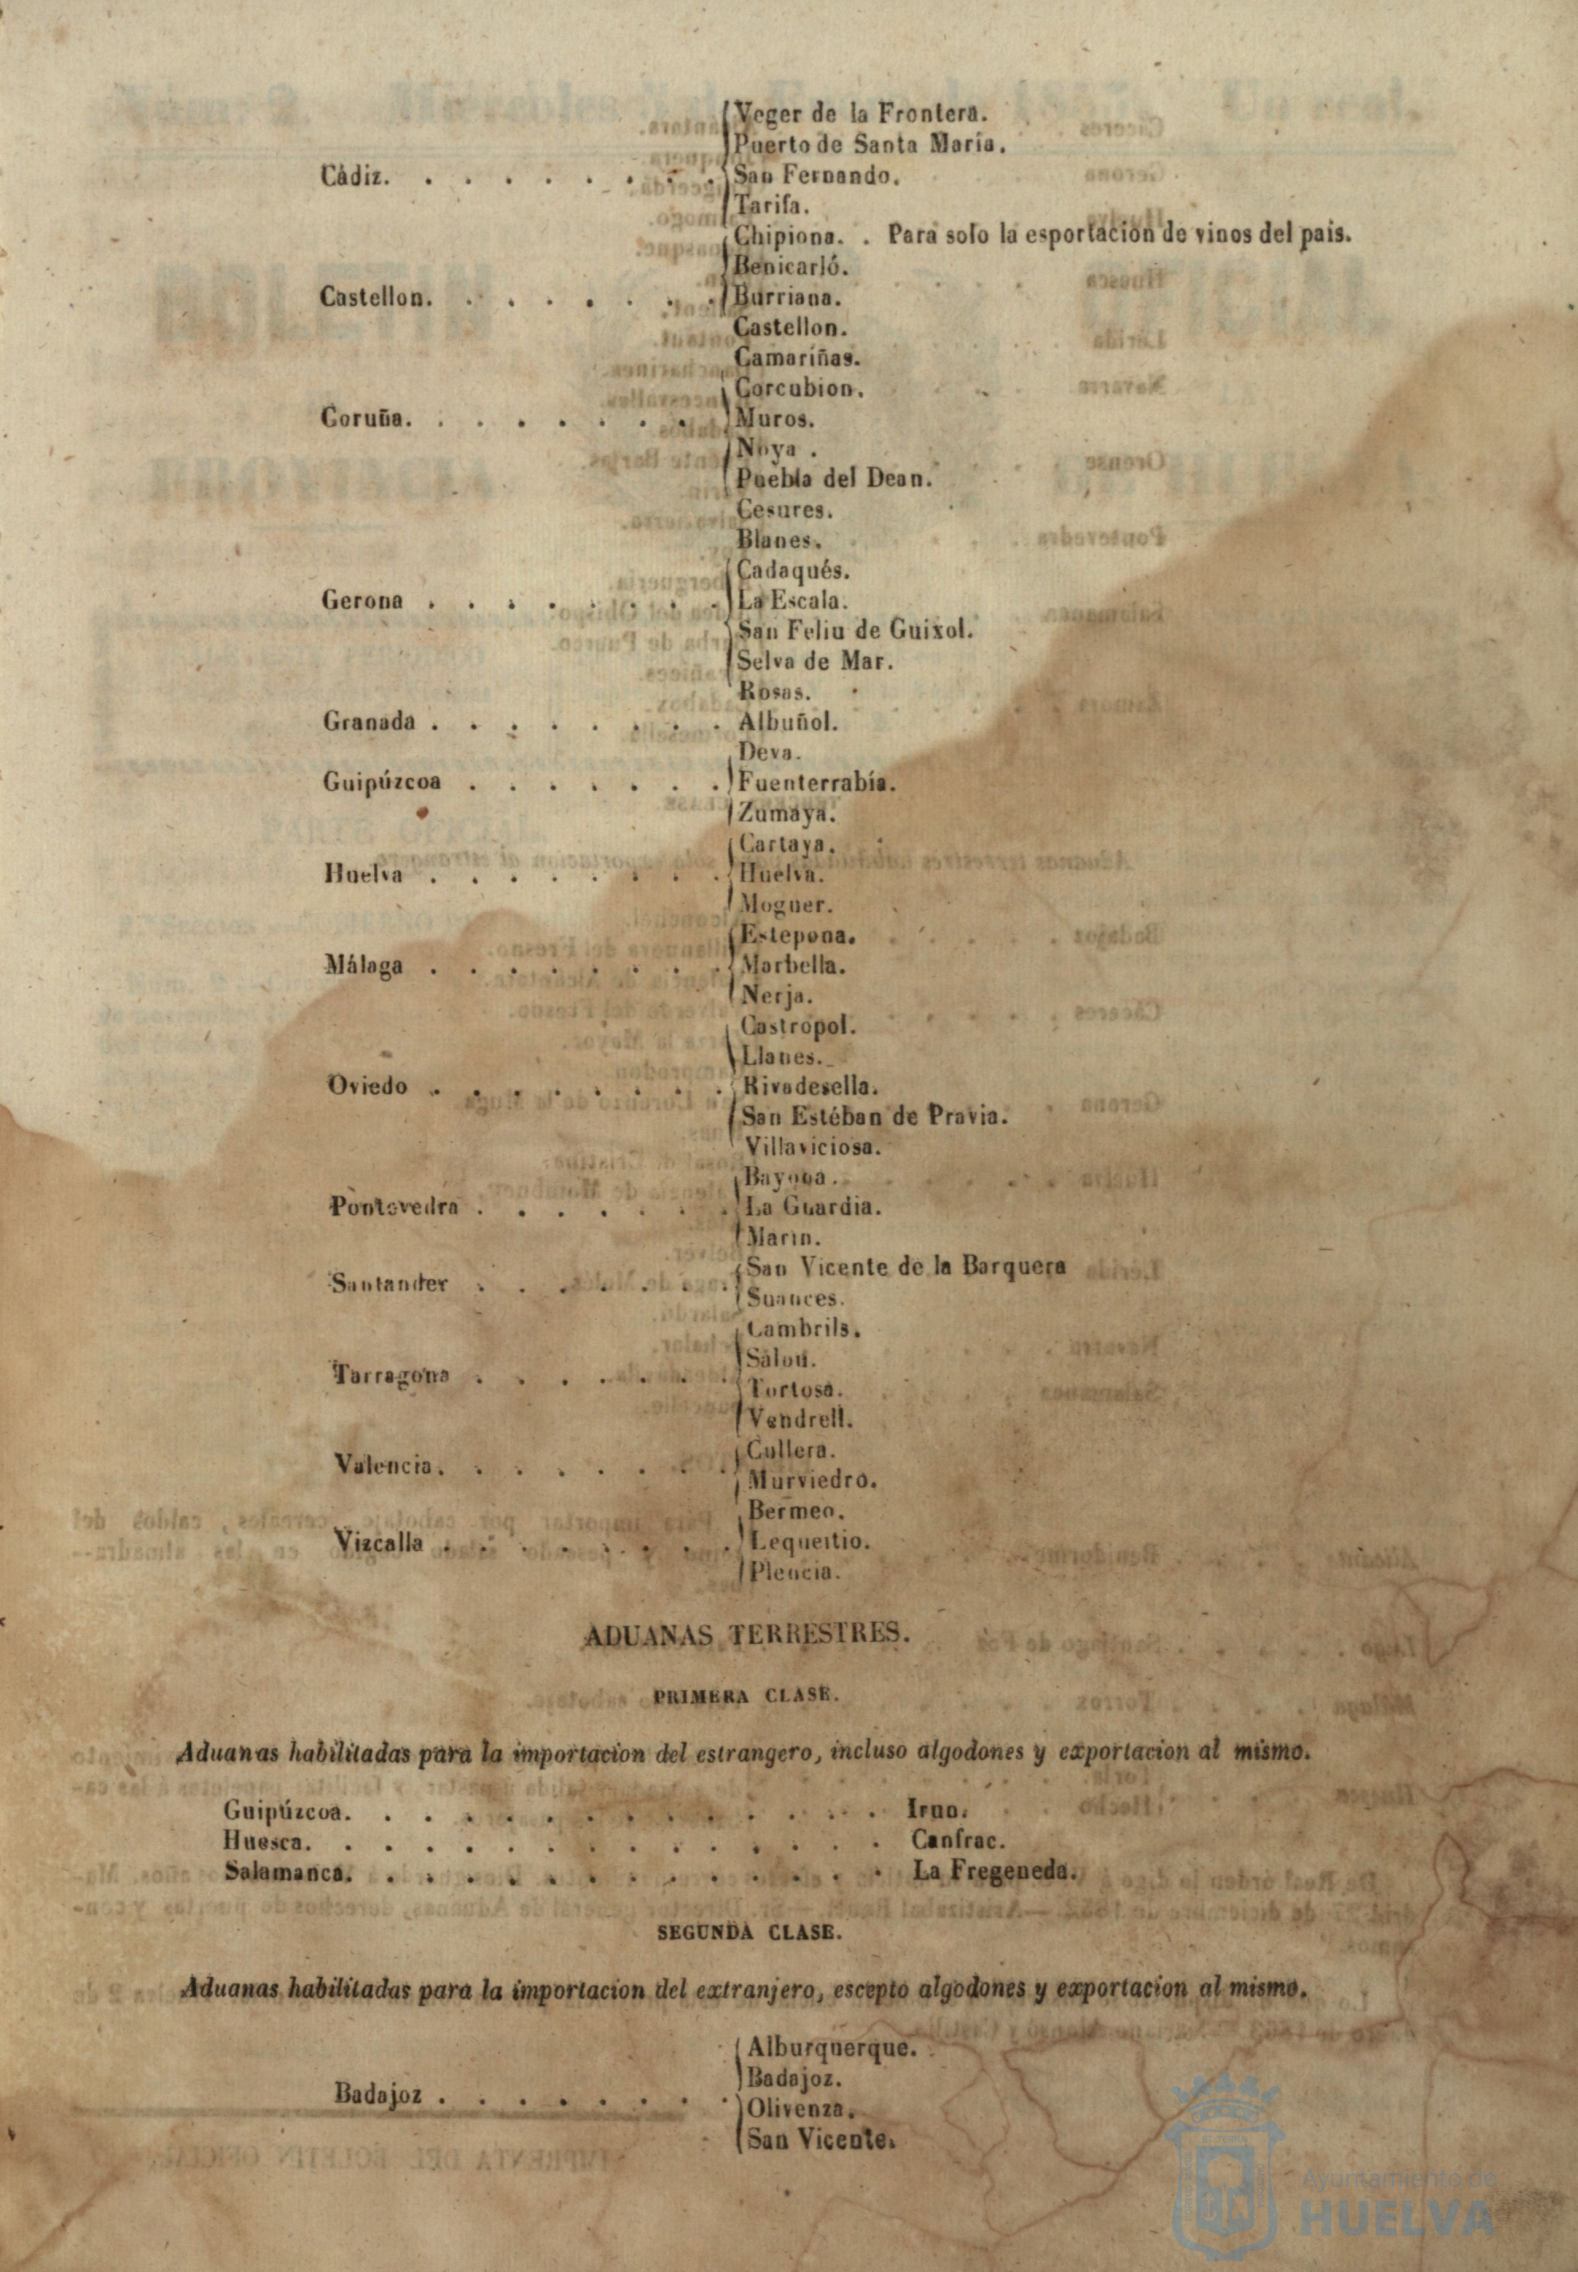 Veger de la Frontera.
Puerto de Santa María.
Cádiz. . . . . . . . . San Fernando.
Tarifa.
Chipiona. . Para solo la esportacion de vinos del pais.
Benicarló.
Castellon. . . . . . . . Burriana.
Castellon.
Camariñas.
Corcubion.
Coruña. . . . . . . . Muros.
Noya .
Puebla del Dean.
Cesures.
Blanes.
Cadaqués.
Gerona . . . . . . . . La Escala.
San Feliu de Guixol.
Selva de Mar.
Rosas.
Granada . . . . . . . . Albuñol.
Deva.
Guipúzcoa . . . . . . . Fuenterrabía.
Zumaya.
Cartaya.
Huelva . . . . . . . . Huelva.
Moguer.
Estepona.
Málaga . . . . . . . . Marbella.
Nerja.
Castropol.
Llanes.
Oviedo . . . . . . . . Rivadesella.
San Estéban de Pravia.
Villaviciosa.
Bayona.
Pontevedra . . . . . . . La Guardia.
Marin.
San Vicente de la Barquera
Santander . . . . . . .
Suances.
Cambrils.
Salou.
Tarragona . . . . . . .
Tortosa.
Vendrell.
Cullera.
Valencia. . . . . . . .
Murviedro.
Bermeo.
Vizcalla . . . . . . . . Lequeitio.
Plencia.
ADUANAS TERRESTRES.
PRIMERA CLASE.
Aduanas habilitadas para la importacion del estrangero, incluso algodones y exportacion al mismo.
Guipúzcoa. . . . . . . . . . . . . . Irun.
Huesca. . . . . . . . . . . . . . . Canfrac.
Salamanca. . . . . . . . . . . . . . La Fregeneda.
SEGUNDA CLASE.
Aduanas habilitadas para la importacion del extranjero, escepto algodones y exportacion al mismo.
Alburquerque.
Badajoz.
Badajoz . . . . . . . .
Olivenza.
San Vicente.
Ayuntamiento de
HUELVA